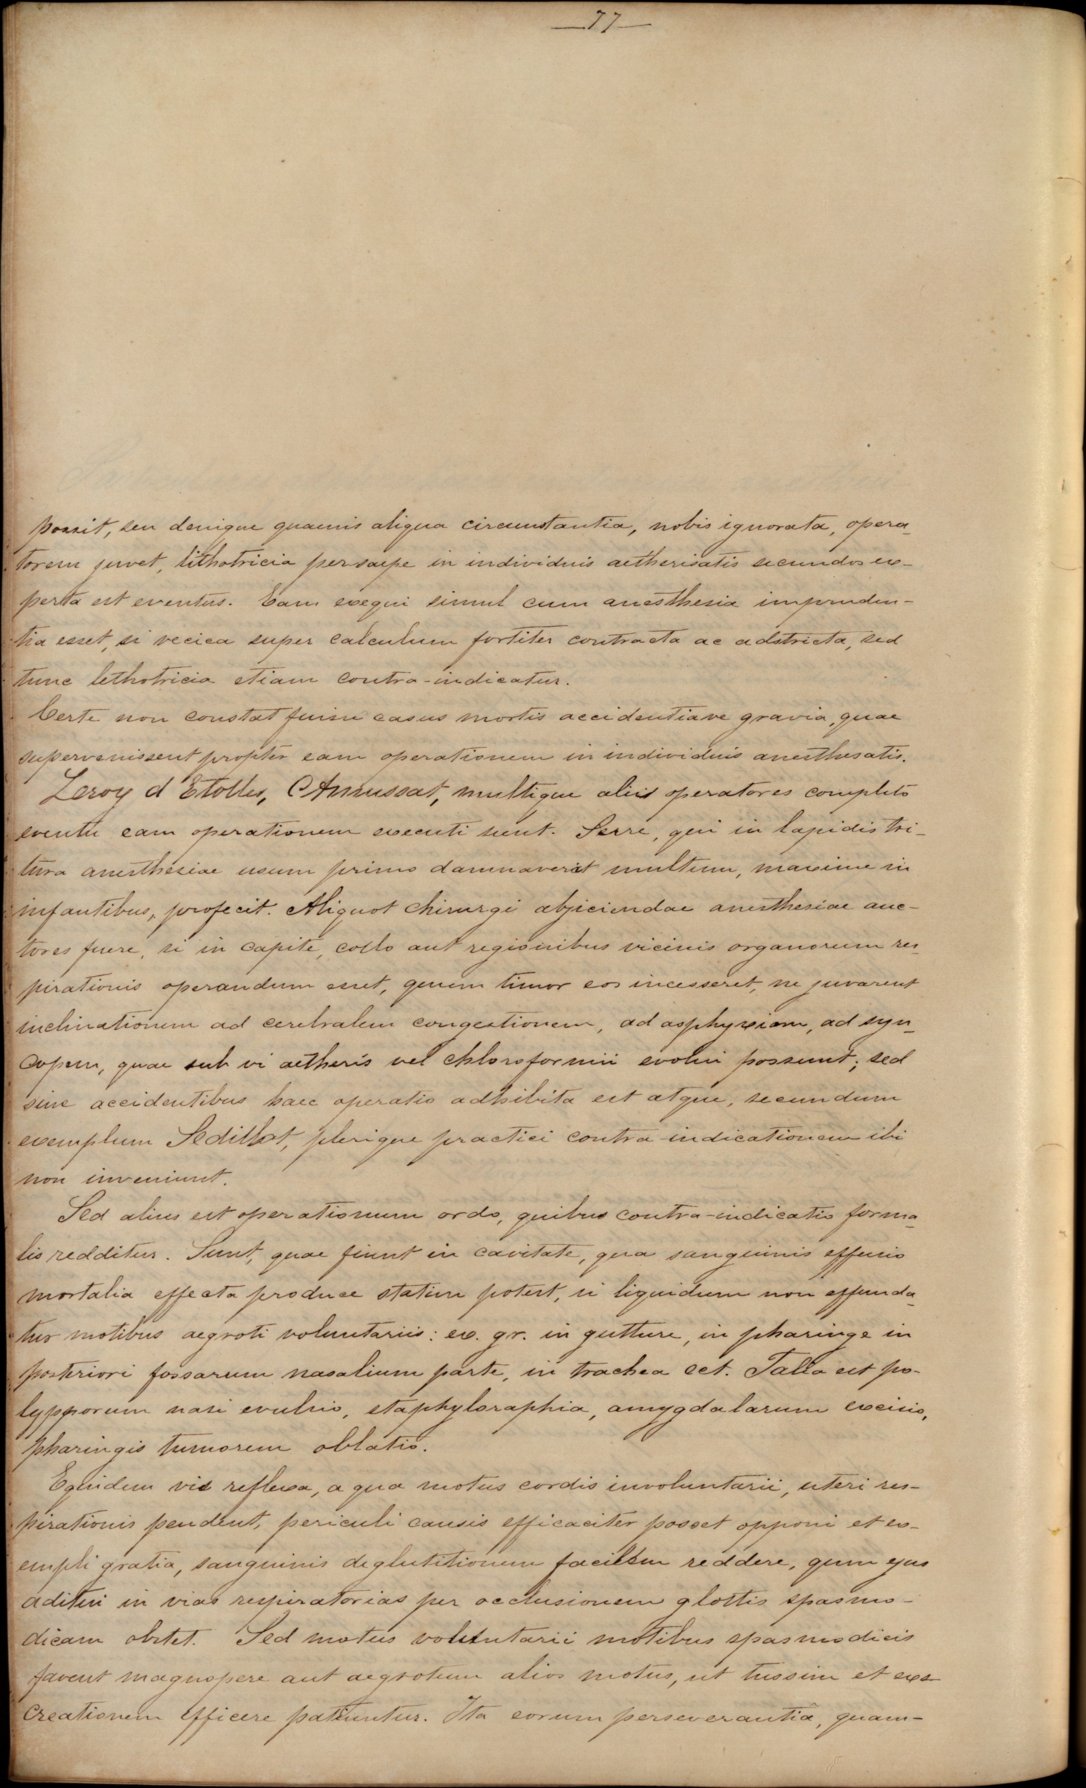 —77—
possit, seu denique quamis aliqua circumstantia, nobis ignorata, opera-
torem juvet, lithotricia persaepe in individuis aetherisatis secundos ex-
perta est eventus. Eam exequi simul cum anesthesia impruden-
tia esset, si vecica super calculum fortiter contracta ac adstricta, sed
tunc lethotricia etiam contra-indicatur.
Certe non constat fuisse casus mortis accidentiave gravia, quae
supervenissent propter eam operationem in individuis anesthesatis.
Leroy d'Etolles, Amussat, multique aliis operatores completo
eventu eam operationem executi sunt. Serre, qui in lapidis tri-
tura anesthesiae usum primo damnaverat multum, maxime in
infantibus, profecit. Aliquot chirurgi abjiciendae anesthesiae auc-
tores fuere, si in capite, collo aut regionibus vicinis organorum res-
pirationis operandum esset, quum timor eos incesseret, ne juvarent
inclinationem ad cerebralem congestionem, ad asphyxiam, ad syn-
copem, quae sub vi aetheris vel chloroformii evolvi possunt; sed
sine accidentibus haec operatio adhibita est atque, secundum
exemplum Sedillot, plerique practici contra indicationem ibi
non inveniunt.
Sed alius est operationum ordo, quibus contra-indicatio forma-
lis redditur. Sunt, quae fiunt in cavitate, qua sanguinis effusio
mortalia effecta produce statim potest, si liquidum non effunda-
tur motibus aegroti voluntariis: ex. gr. in gutture, in pharinge in
postriori fossarum nasalium parte, in trachea cet. Talia est po-
lypporum nasi evulsio, staphyloraphia, amygdalarum excisio,
pharingis tumorem oblatio.
Equidem vis reflexa, a qua motus cordis involuntarii, uteri res-
pirationis pendent, periculi causis efficaciter posset opponi et ex-
empli gratia, sanguinis deglutitionem facilem reddere, quum ejus
aditui in vias respiratorias per occlusionem glottis spasmo-
dicam obstet. Sed motus voluntarii motibus spasmodicis
favent magnopere aut aegrotum alios motus, ut tussim et exs-
creationem efficere patiuntur. Ita eorum perseverantia, quam-